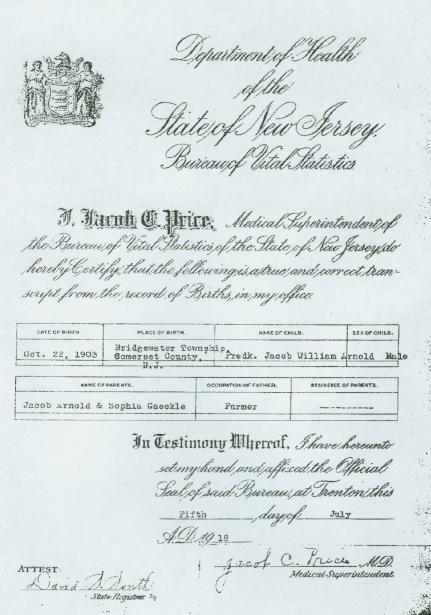 Department of Health
of the
State of New Jersey
Bureau of Vital Statistics
I, Jacob C. Price, Medical Superintendent of
the Bureau of Vital Statistics of the State of New Jersey, do
hereby Certify, that the following is a true and correct tran-
script from the record of Births, in my office.
DATE OF BIRTH. PLACE OF BIRTH. NAME OF CHILD. SEX OF CHILD.
Oct. 22, 1903 Bridgewater Township, Somerset County, N.J. Fredk. Jacob William Arnold Male
NAME OF PARENTS. OCCUPATION OF FATHER. RESIDENCE OF PARENTS.
Jacob Arnold & Sophia Gaeckle Farmer ----------
In Testimony Whereof, I have hereunto
set my hand and affixed the Official
Seal of said Bureau, at Trenton, this
Fifth day of July
A.D. 19 18
Jacob C. Price M.D.
Medical Superintendent
ATTEST
David S. South
State Registrar